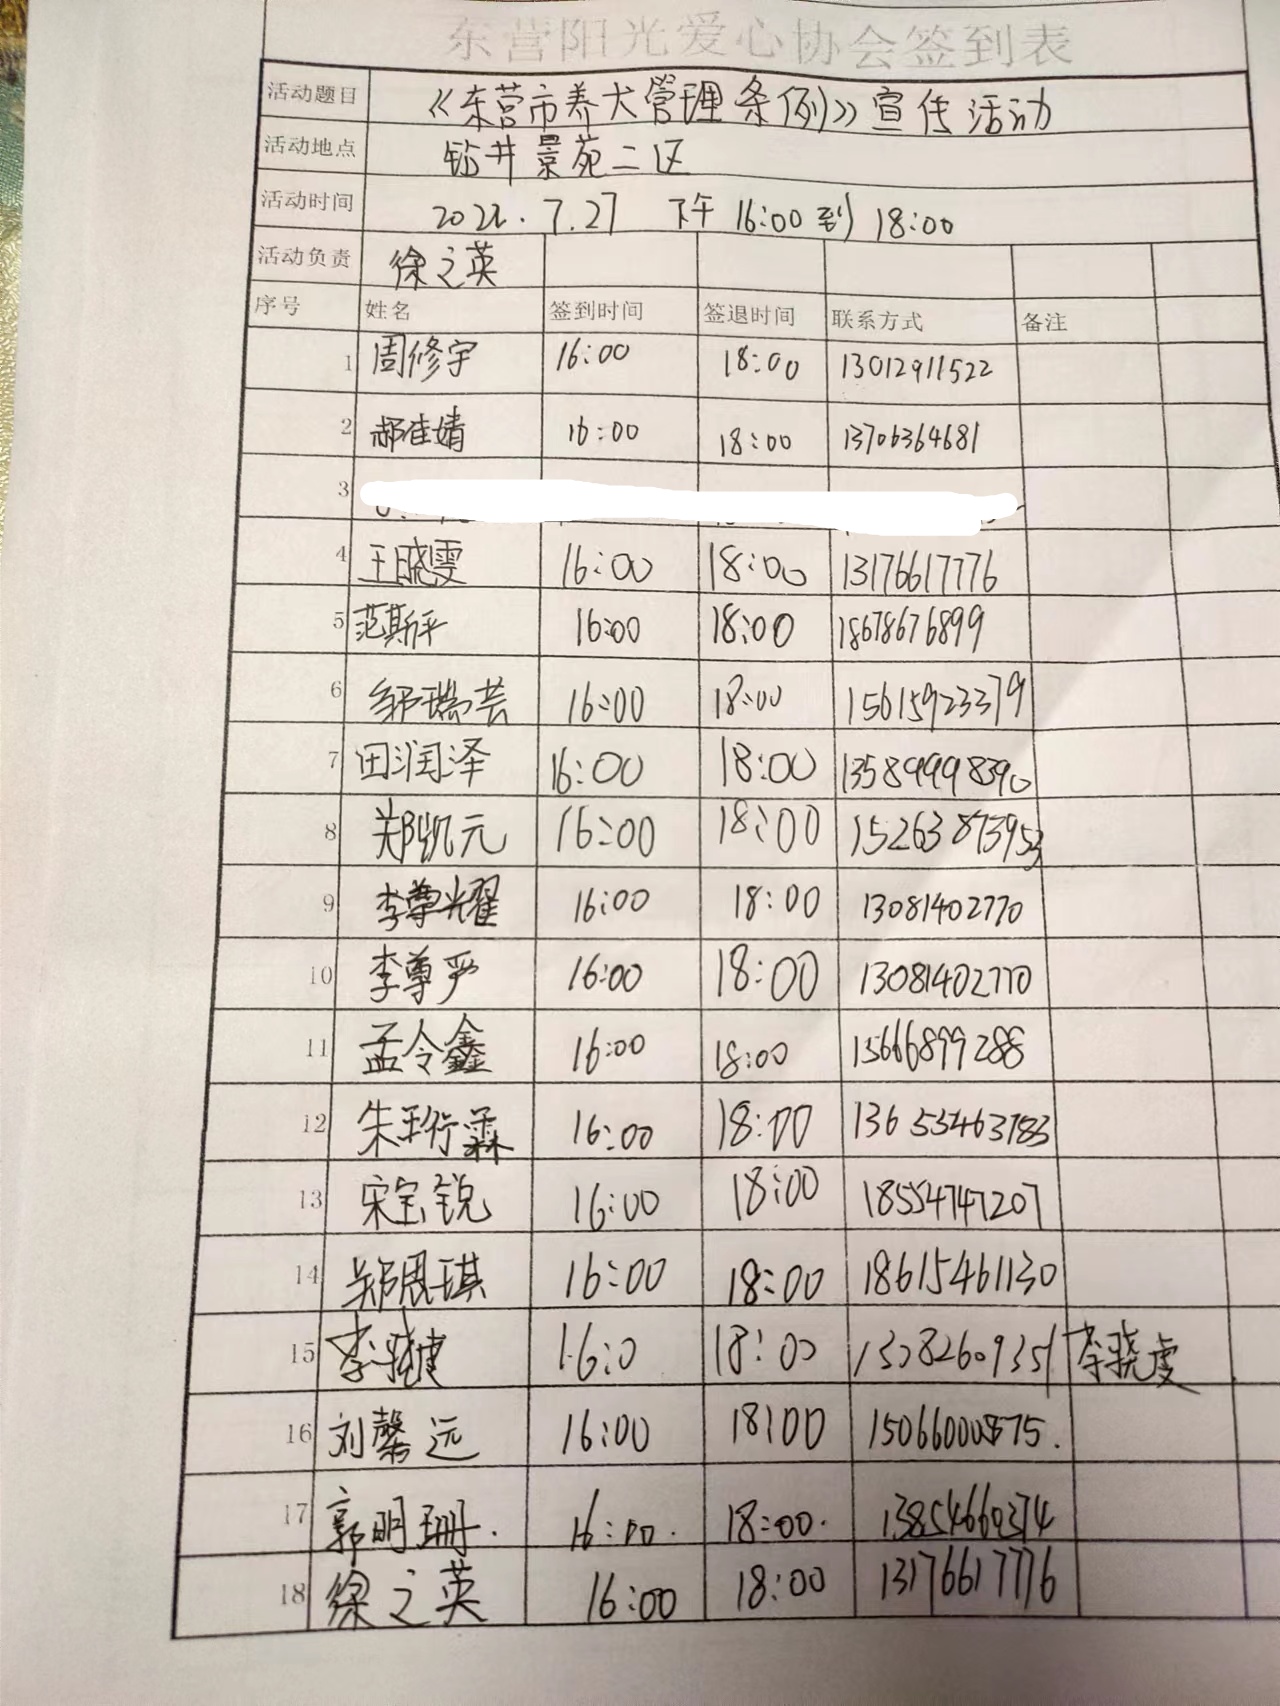 东营阳光爱心协会签到表
活动题目 《东营市养犬管理条例》宣传活动
活动地点 钻井景苑二区
活动时间 2022.7.27 下午 16:00到 18:00
活动负责 徐之英
序号 姓名 签到时间 签退时间 联系方式 备注
1 周修宇 16:00 18:00 13012911522
2 郝佳婧 16:00 18:00 13706364681
3
4 王晓雯 16:00 18:00 13176617776
5 范斯平 16:00 18:00 18678676899
6 邹瑞芸 16:00 18:00 15615923379
7 田润泽 16:00 18:00 13589998390
8 郑凯元 16:00 18:00 15263873953
9 李尊耀 16:00 18:00 13081402770
10 李尊严 16:00 18:00 13081402770
11 孟令鑫 16:00 18:00 15666899288
12 朱珩霖 16:00 18:00
13 宋宝锐 16:00 18:00 18554747207
14 郑周琪 16:00 18:00 18615461130
15 16:0 18:00 李骁虔
16 刘馨远 16:00 18:00
17 郭明珊. 16:00. 18:00. 13854660374
18 徐之英 16:00 18:00 13176617776